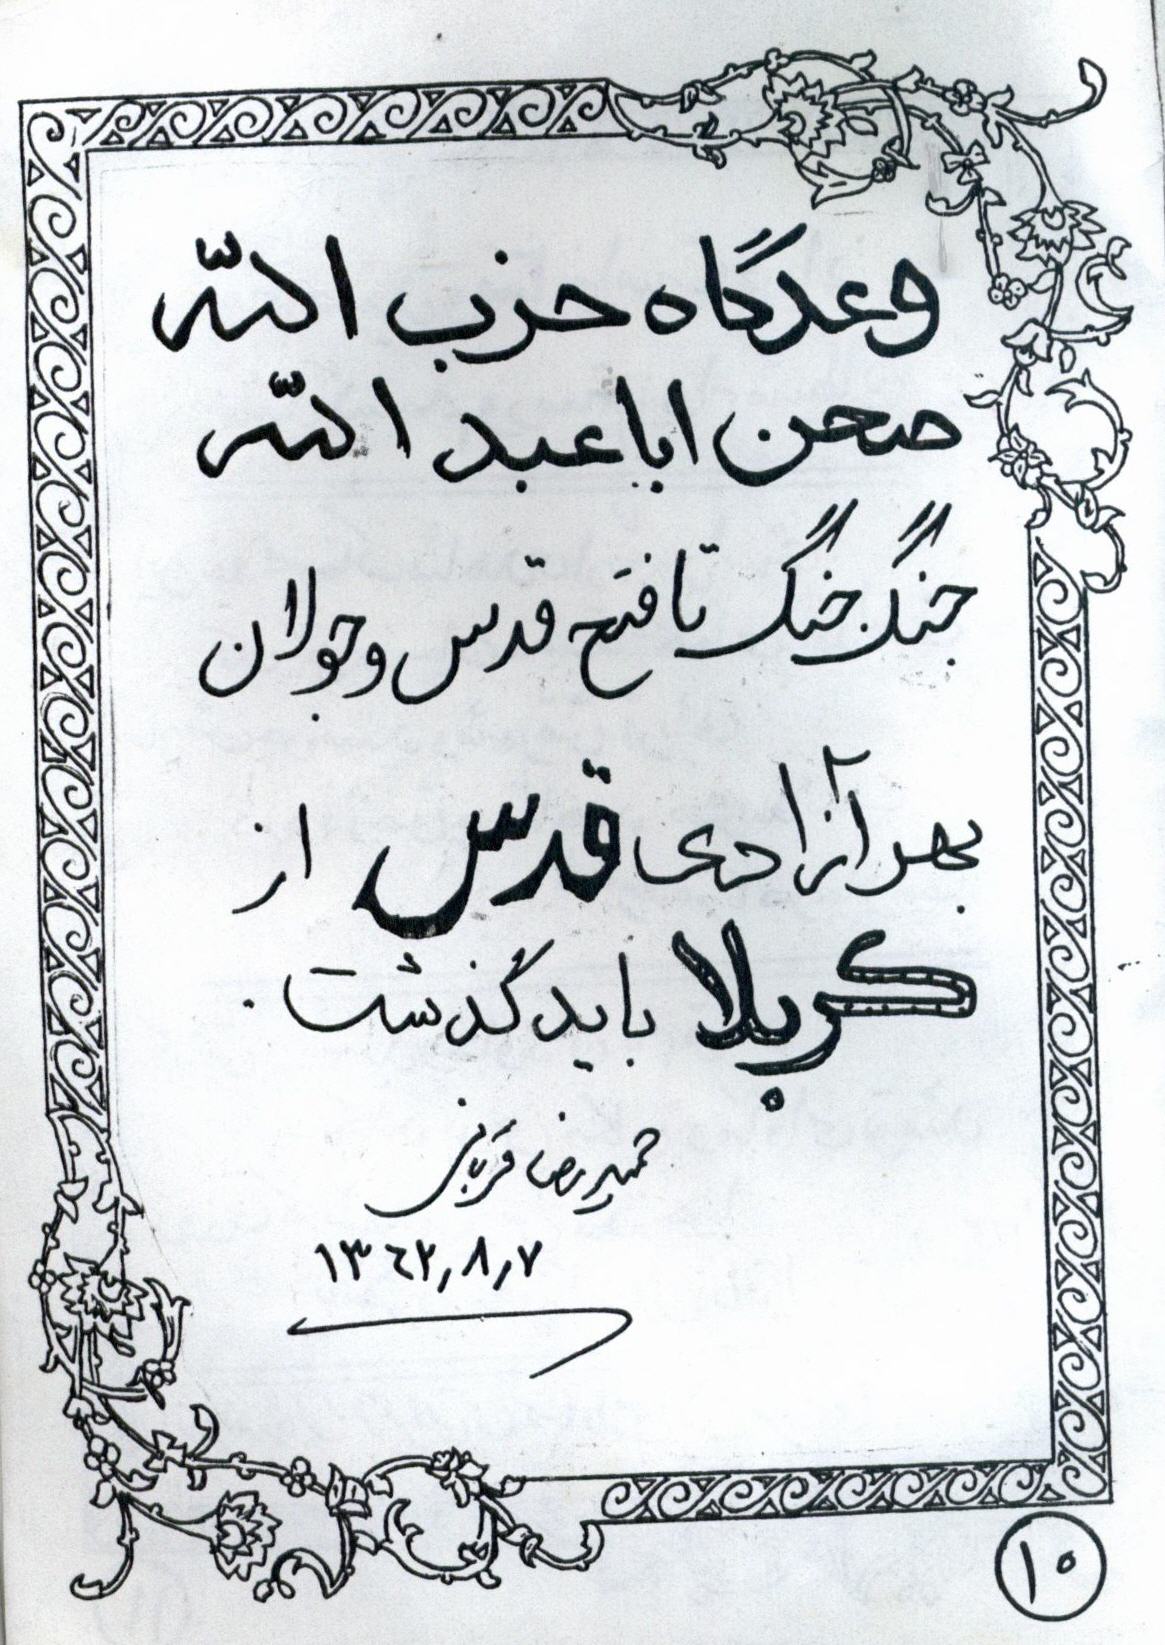 وعدگاه حزب الله
صحن اباعبد الله
جنگ جنگ تا فتح قدس و جولان
بهر آزادی قدس از
کربلا باید گذشت .
حمیدرضا قربانی
۱۳٦۲٫۸٫۷
۱۰